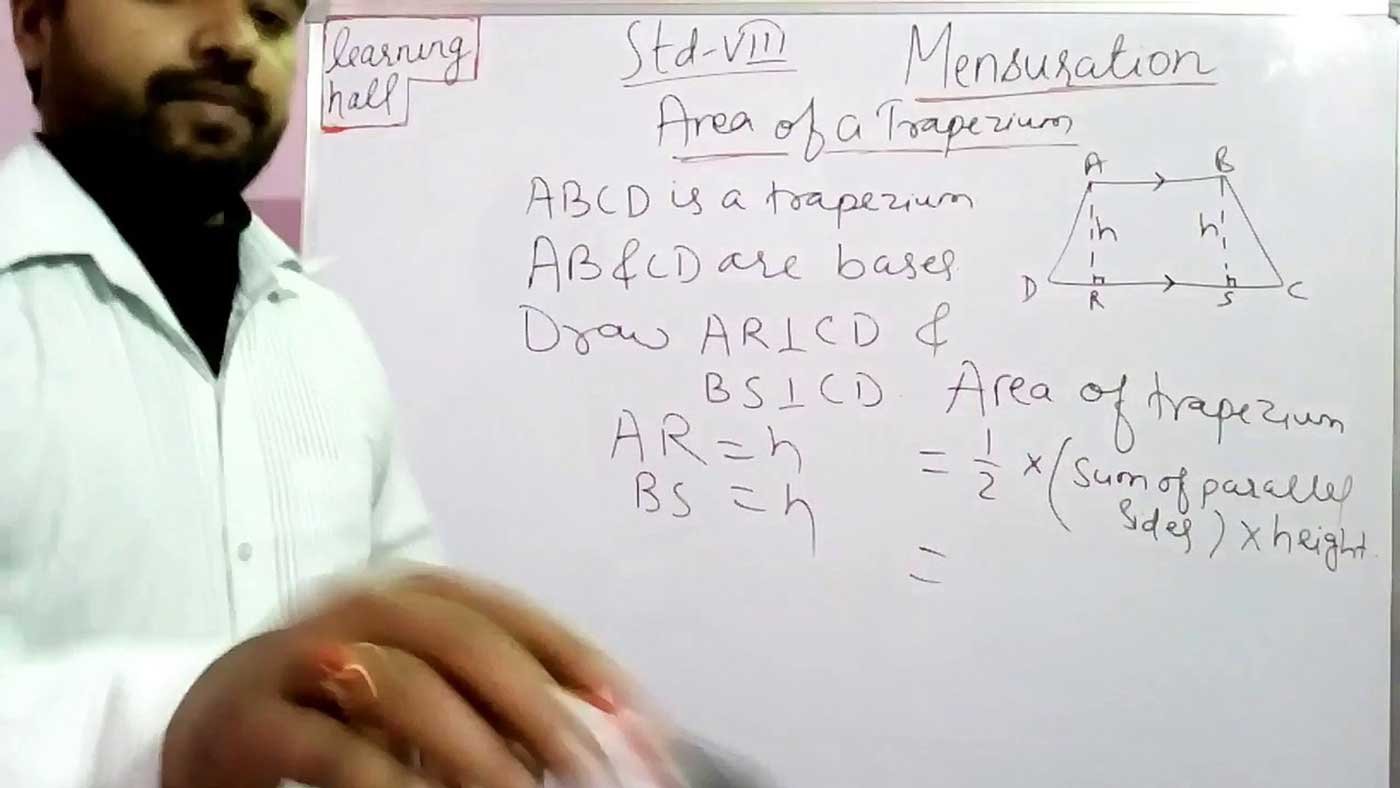 learning
hall
Std-VIII
Mensuration
Area of a Trapezium
ABCD is a trapezium
AB & CD are bases
Draw AR⊥CD &
BS⊥CD.
AR = h
BS = h
A B
h h
D R S C
Area of trapezium
= 1/2 × (Sum of parallel
Sides) × height.
=